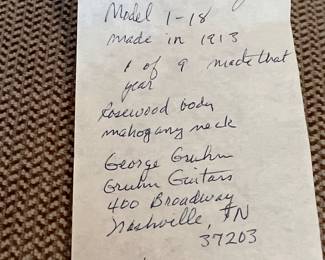 Model 1-18
made in 1913
1 of 9 made that
year
Rosewood body
mahogany neck
George Gruhn
Gruhn Guitars
400 Broadway
Nashville, TN
37203